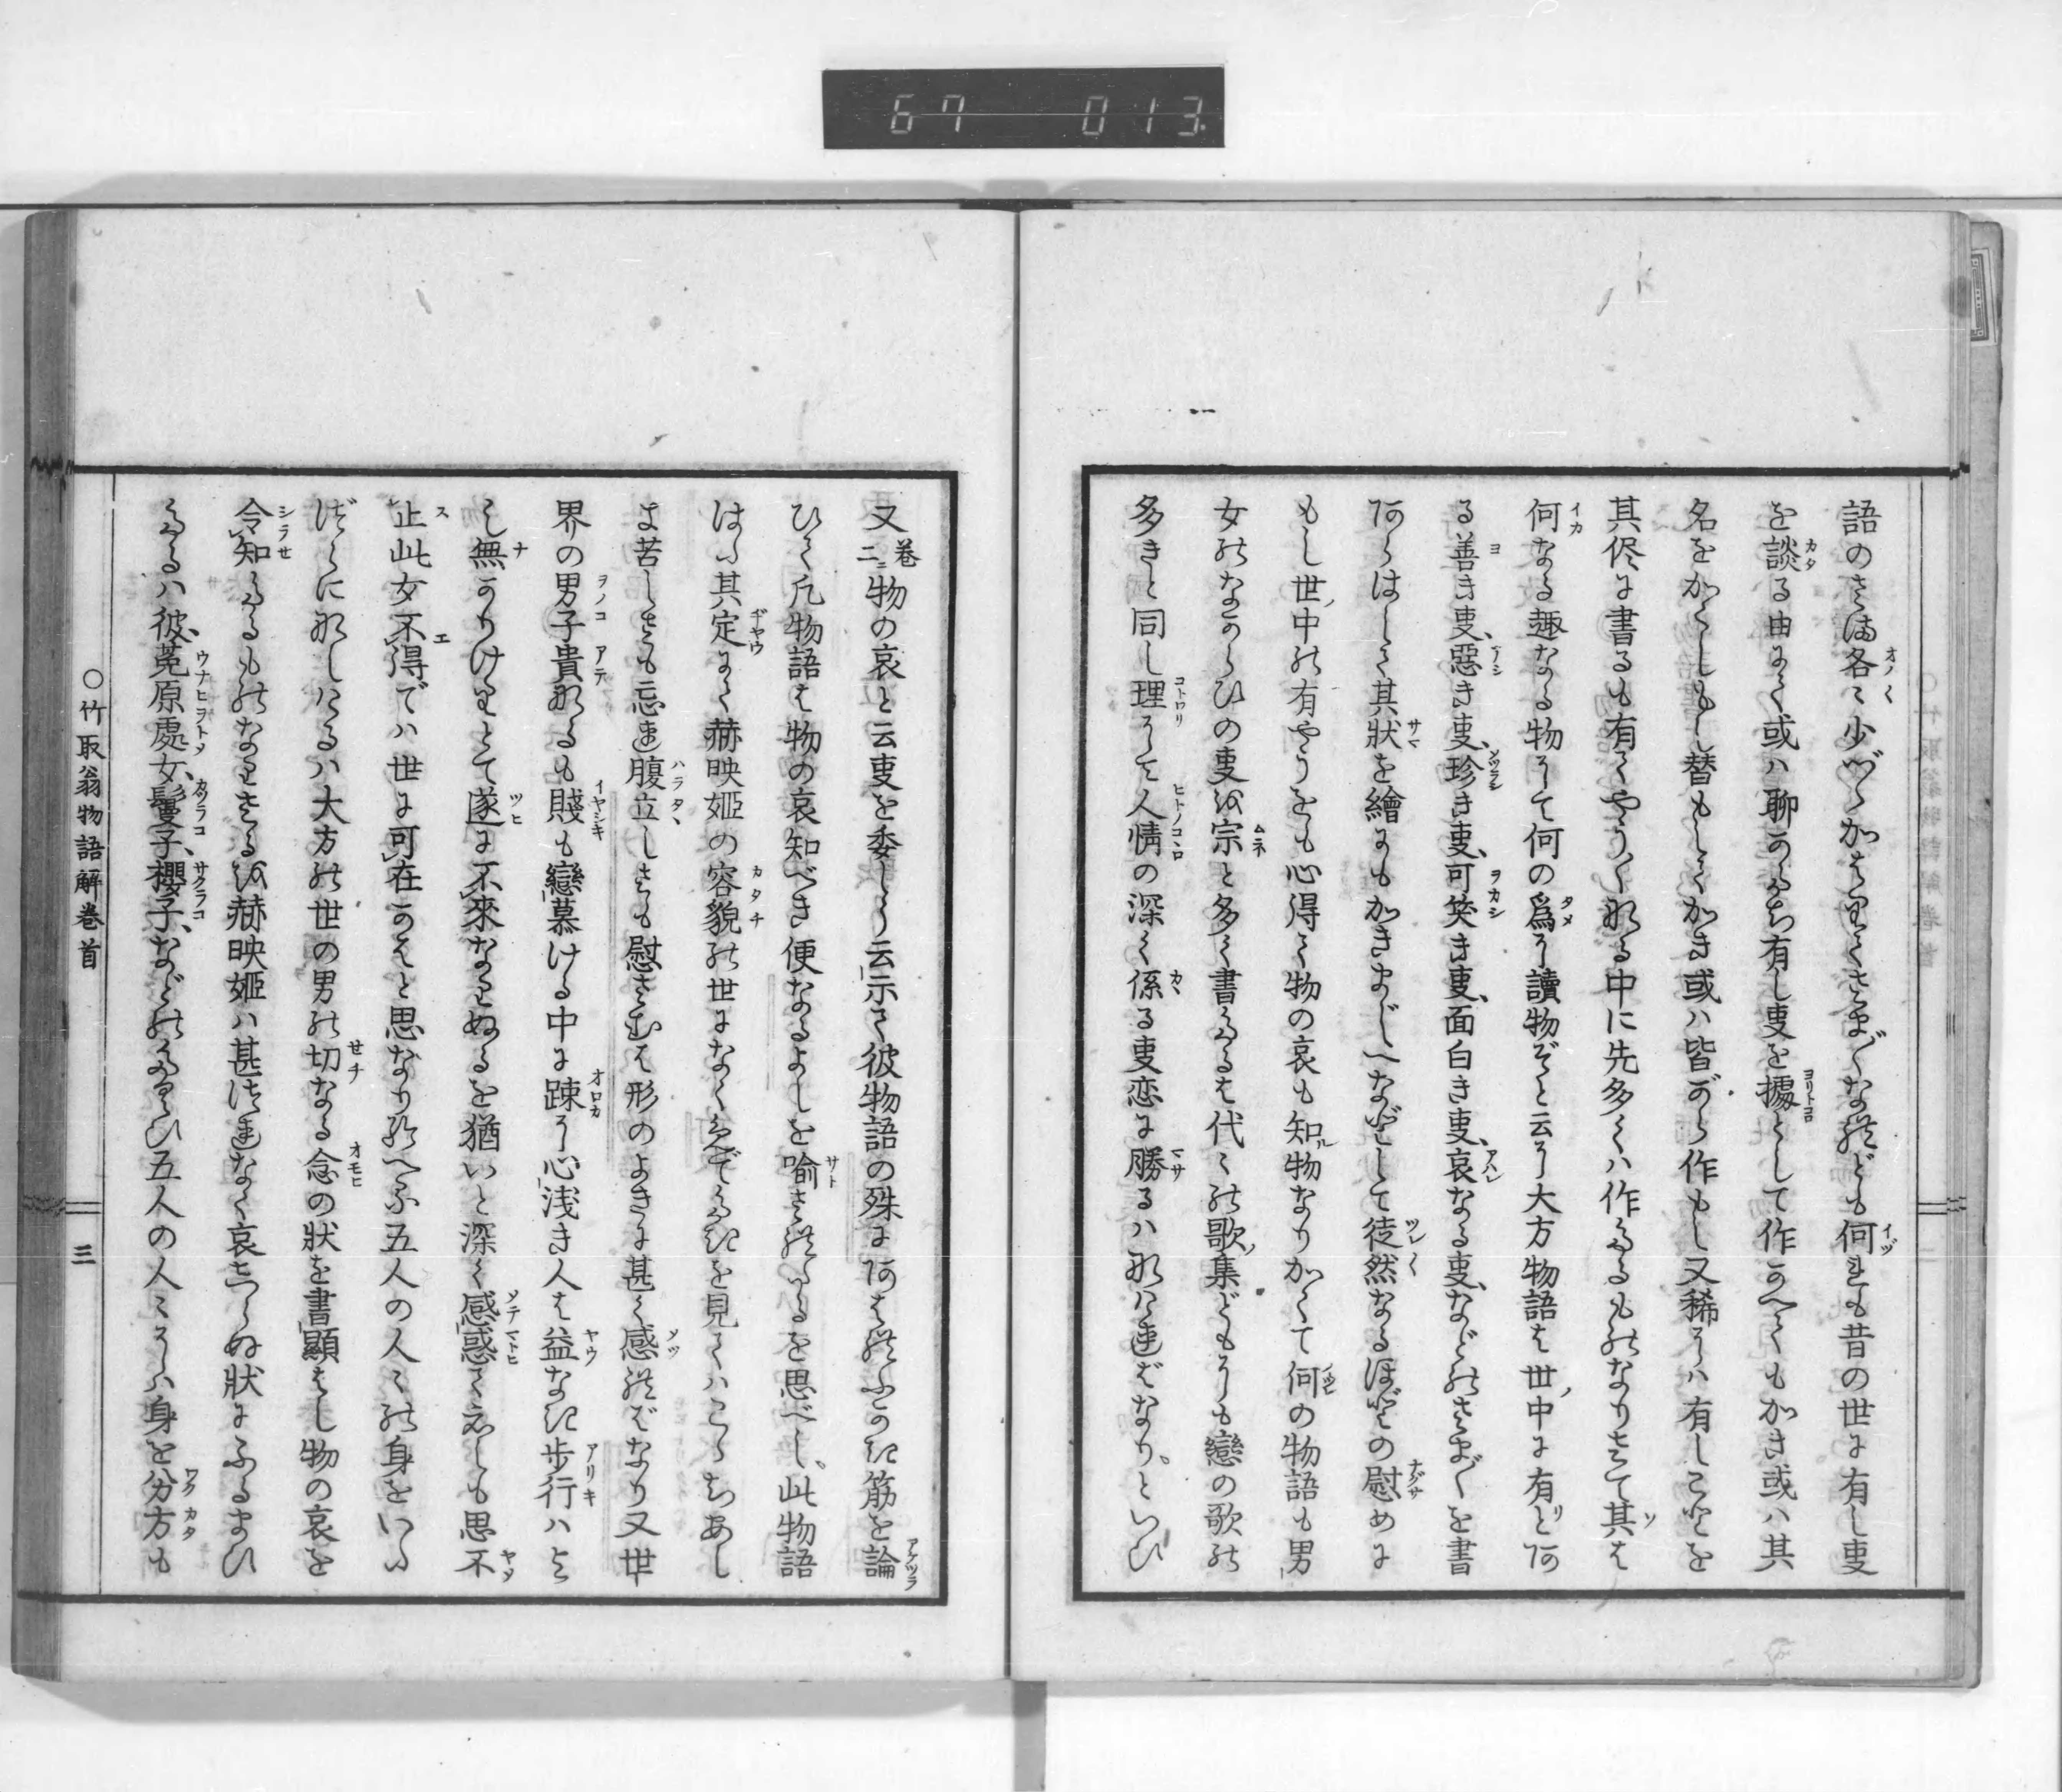 67 013
語のさま各〻少づゝかはりてさま〴〵なれども何れも昔の世に有し事
を談る由にて或ハ聊かたち有し事を據として作かへてもかき或ハ其
名をかくしもし替もしてかき或ハ皆がら作もし又稀にハ有しことを
其侭に書るも有てやう〳〵なる中に先多くハ作たるものなりさて其は
何なる趣なる物にて何の爲に讀物ぞと云に大方物語は世ノ中に有とあ
る善き事、惡き事、珍き事、可笑き事、面白き事、哀なる事、などのさま〴〵を書
あらはして其狀を繪にもかきまじへなどして徒然なるほどの慰めに
もし世ノ中の有やうをも心得て物の哀も知ル物なりかくて何の物語も男
女のなからひの事を宗と多く書たるは代〻の歌ノ集どもにも戀の歌の
多きと同し理にて人情の深く係る事恋に勝るハなければなり。といひ
又卷二ニ物の哀と云事を委しう云示て彼物語の殊にあはれふかき筋を論
ひて凡物語は物の哀知べき便なるよしを喻されたるを思べし、此物語
はゝ其定にて赫映姫の容貌の世になくめでたきを見てハこゝちあし
く苦しきも忘れ腹立しきも慰さむは形のよきに甚く感ればなり又世
界の男子貴なるも賤も戀慕ける中に踈に心浅き人は益なき歩行ハよ
し無かりけりとて遂に不來なりぬるを猶いと深く感惑て忍しも思不
止此女不得でハ世に可在かはと思なりかへふ五人の人〻の身をいゝ
づらになしたるハ大方の世の男の切なる念の狀を書顯はし物の哀を
令知たるものなりさるを赫映姫ハ甚つれなく哀しらぬ狀にふるまひ
たるハ彼、菟原處女、鬘子、櫻子、などのたぐひ五人の人〻にハ身を分方も
○竹取翁物語解卷首
三